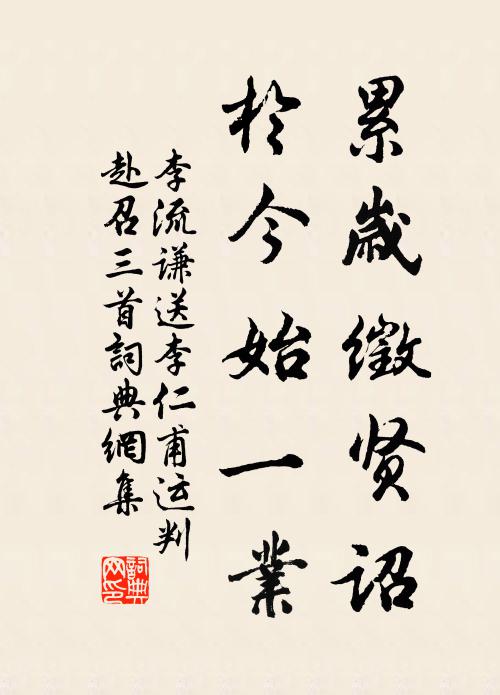 累歲徵贤詔
於今始一業
李流谦送李仁甫运判
赴召三首詞典網集
詞典
网印